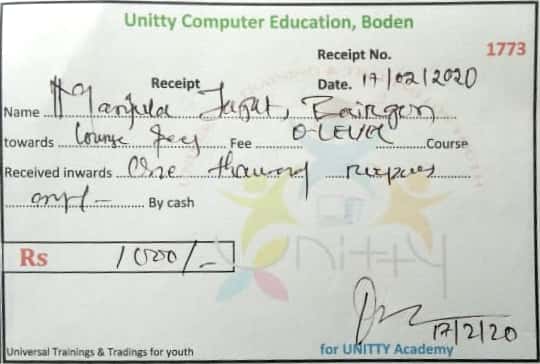 Unitty Computer Education, Boden
Receipt No. 1773
Receipt Date. 17/02/2020
Name Manjula
towards Course fees Fee O-LEVEL Course
Received inwards One thousand rupees
only/- By cash
Rs 1000/-
UNITTY
17/2/20
Universal Trainings & Tradings for youth for UNITTY Academy